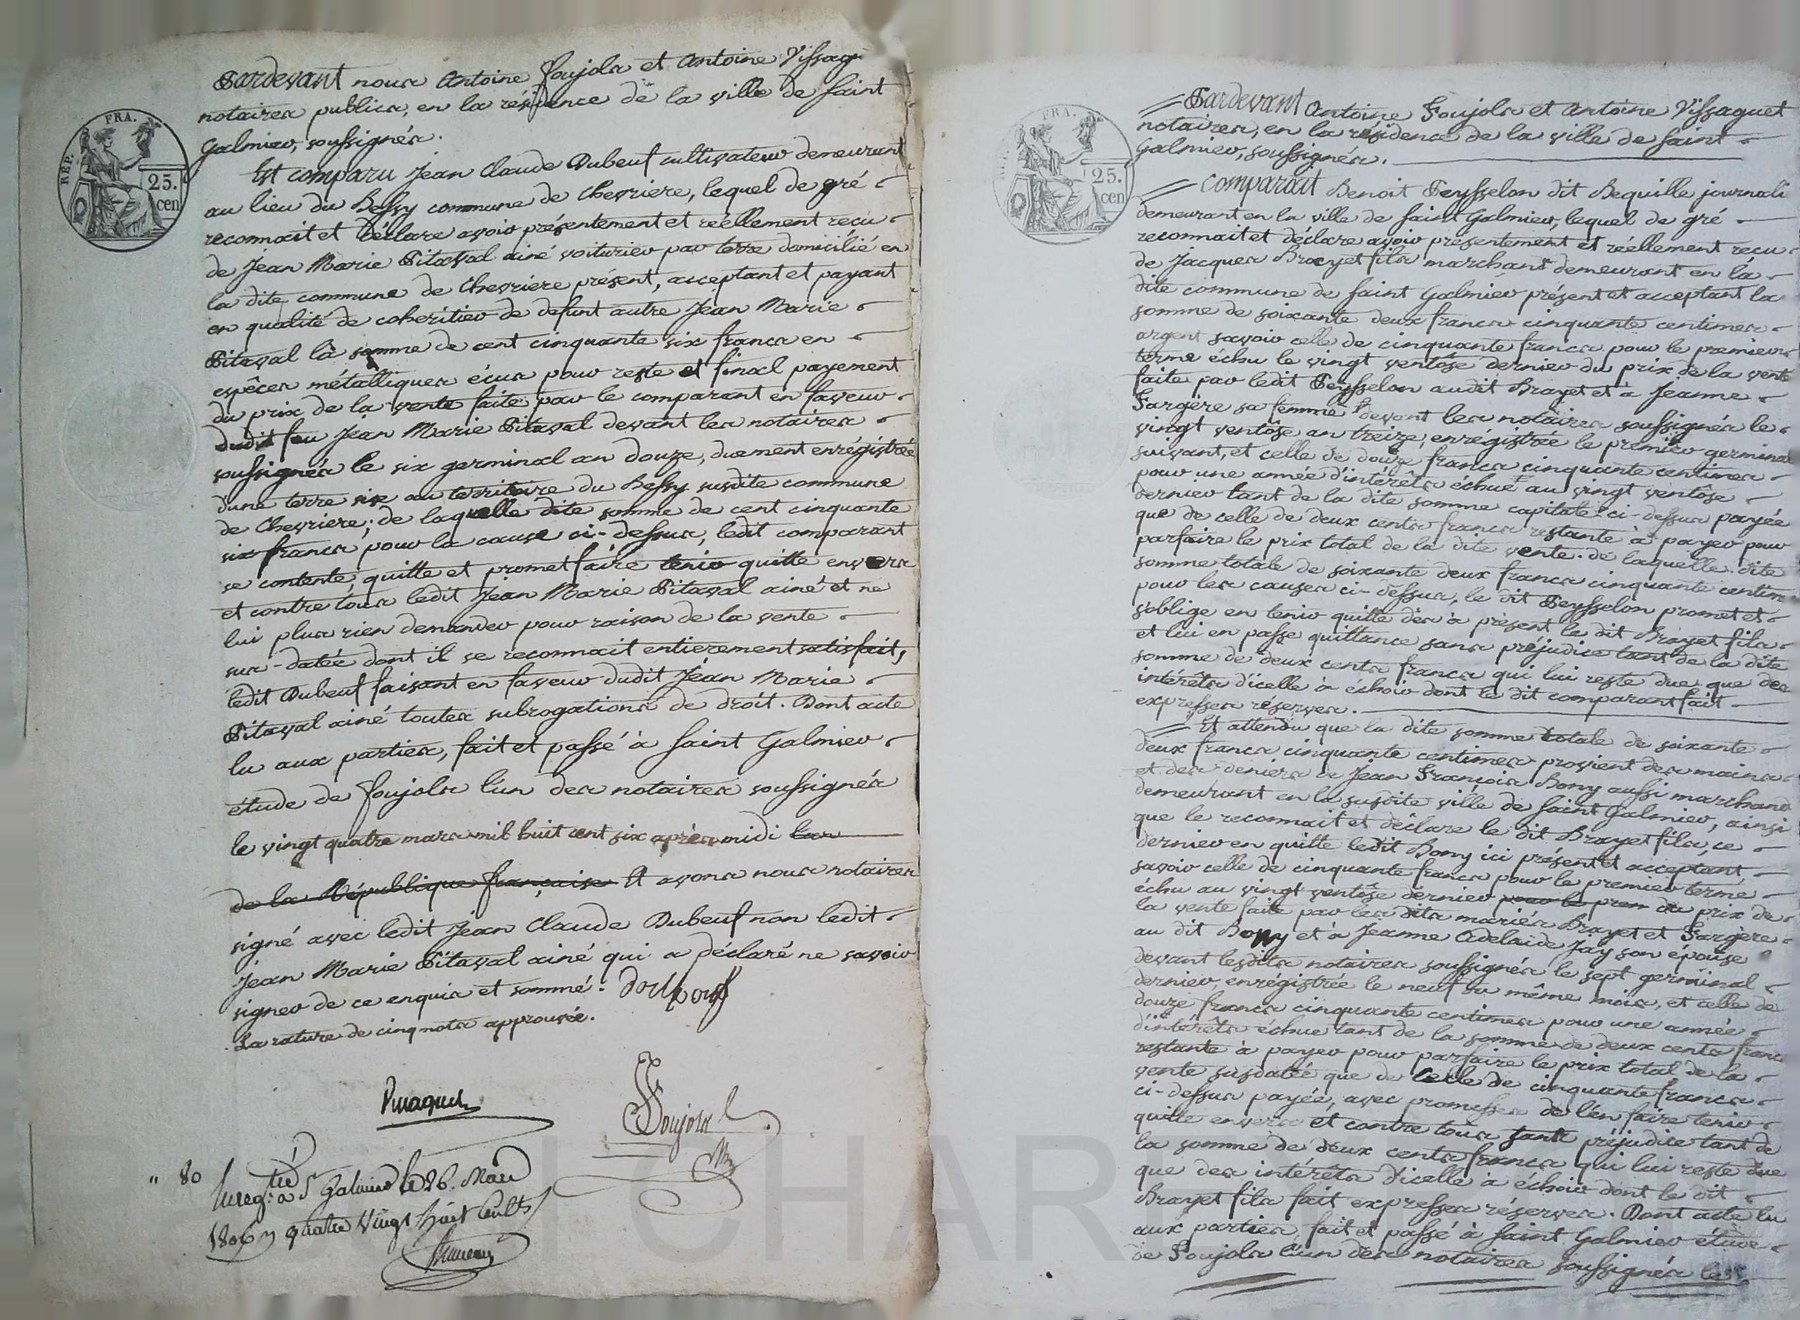 Pardevant nous Antoine Foujols et Antoine Vissaguet
notaires publics, en la résidence de la ville de saint
Galmier, soussignés.
Est comparu Jean Claude Dubeuf cultivateur demeurant
au lieu du Bessy commune de Chevriere, lequel de gré
reconnait et déclare avoir présentement et réellement recu
de Jean Marie Pitaval ainé voiturier par terre domicilié en
la dite commune de Chevriere présent, acceptant et payant
en qualité de coheritier de defunt autre Jean Marie
Pitaval la somme de cent cinquante six francs en
espêces métalliques écus pour reste et final payement
du prix de la vente faite par le comparant en faveur
dudit feu Jean Marie Pitaval devant les notaires
soussignés le six germinal an douze, duement enrégistrée
d'une terre sise au territoire du Bessy susdite commune
de Chevriere; de laquelle dite somme de cent cinquante
six francs pour la cause ci-dessus, ledit comparant
se contente quitte et promet faire tenir quitte envers
et contre tous ledit Jean Marie Pitaval ainé et ne
lui plus rien demander pour raison de la vente
sus-datée dont il se reconnait entierement satisfait,
ledit Dubeuf faisant en faveur dudit Jean Marie
Pitaval ainé toutes subrogations de droit. Dont acte
lu aux parties, fait et passé à saint Galmier
étude de Foujols l'un des notaires soussignés
le vingt quatre mars mil huit cent six après midi l'an
de la République française Et avons nous notaires
signé avec ledit Jean Claude Dubeuf non ledit
Jean Marie Pitaval ainé qui a déclaré ne savoir
signer de ce enquis et sommé.
La rature de cinq mots approuvée.
Vissaguet
Foujols
Nre
" 80
Enregtré à St Galmier le 26. Mars
1806 quatre vingt huit Cents
25.
cen
REP. FRA.
Pardevant Antoine Foujols et Antoine Vissaguet
notaires, en la résidence de la ville de saint
Galmier, soussignés.
Comparait Benoit Peysselon dit Bequille journali
demeurant en la ville de saint Galmier, lequel de gré
reconnait et déclare avoir présentement et réellement recu
de Jacques Brayet fils marchand demeurant en la
dite commune de saint Galmier présent et acceptant la
somme de soixante deux francs cinquante centimes
argent savoir celle de cinquante francs pour le premier
terme échu le vingt ventôse dernier du prix de la vente
faite par ledit Peysselon audit Brayet et à Jeanne
Fargère sa femme devant les notaires soussignés le
vingt ventôse an treize, enrégistrée le premier germinal
suivant, et celle de douze francs cinquante centimes
pour une année d'intérêts échue au vingt ventôse
dernier tant de la dite somme capitale ci-dessus payée
que de celle de deux cents francs restante à payer pour
parfaire le prix total de la dite vente. de laquelle dite
somme totale de soixante deux francs cinquante centimes
pour les causes ci-dessus, le dit Peysselon promet et
s'oblige en tenir quitte dès à présent le dit Brayet fils
et lui en passe quittance sans préjudice tant de la dite
somme de deux cents francs qui lui reste due que des
intérêts d'icelle à échoir dont le dit comparant fait
expresses réserves.
Et attendu que la dite somme totale de soixante
deux francs cinquante centimes provient des mains
et des deniers de Jean François Bony aussi marchand
demeurant en la susdite ville de saint Galmier, ainsi
que le reconnait et déclare le dit Brayet fils, ce
dernier en quitte ledit Bony ici présent et acceptant
savoir celle de cinquante francs pour le premier terme
échu au vingt ventôse dernier pour le prem du prix de
la vente faite par les dits mariés Brayet et Fargère
au dit Bony et à Jeanne Adelaide Jay son épouse
devant lesdits notaires soussignés le sept germinal
dernier, enrégistrée le neuf du même mois, et celle de
douze francs cinquante centimes pour une année
d'intérêts échue tant de la somme de deux cents francs
restante à payer pour parfaire le prix total de la
vente susdatée que de celle de cinquante francs
ci-dessus payée, avec promesse de l'en faire tenir
quitte envers et contre tous sans préjudice tant de
la somme de deux cents francs qui lui reste due
que des intérêts d'icelle à échoir dont le dit
Brayet fils fait expresses réserves. Dont acte lu
aux parties, fait et passé à saint Galmier étude
de Foujols l'un des notaires soussignés le
FRA.
25.
cen